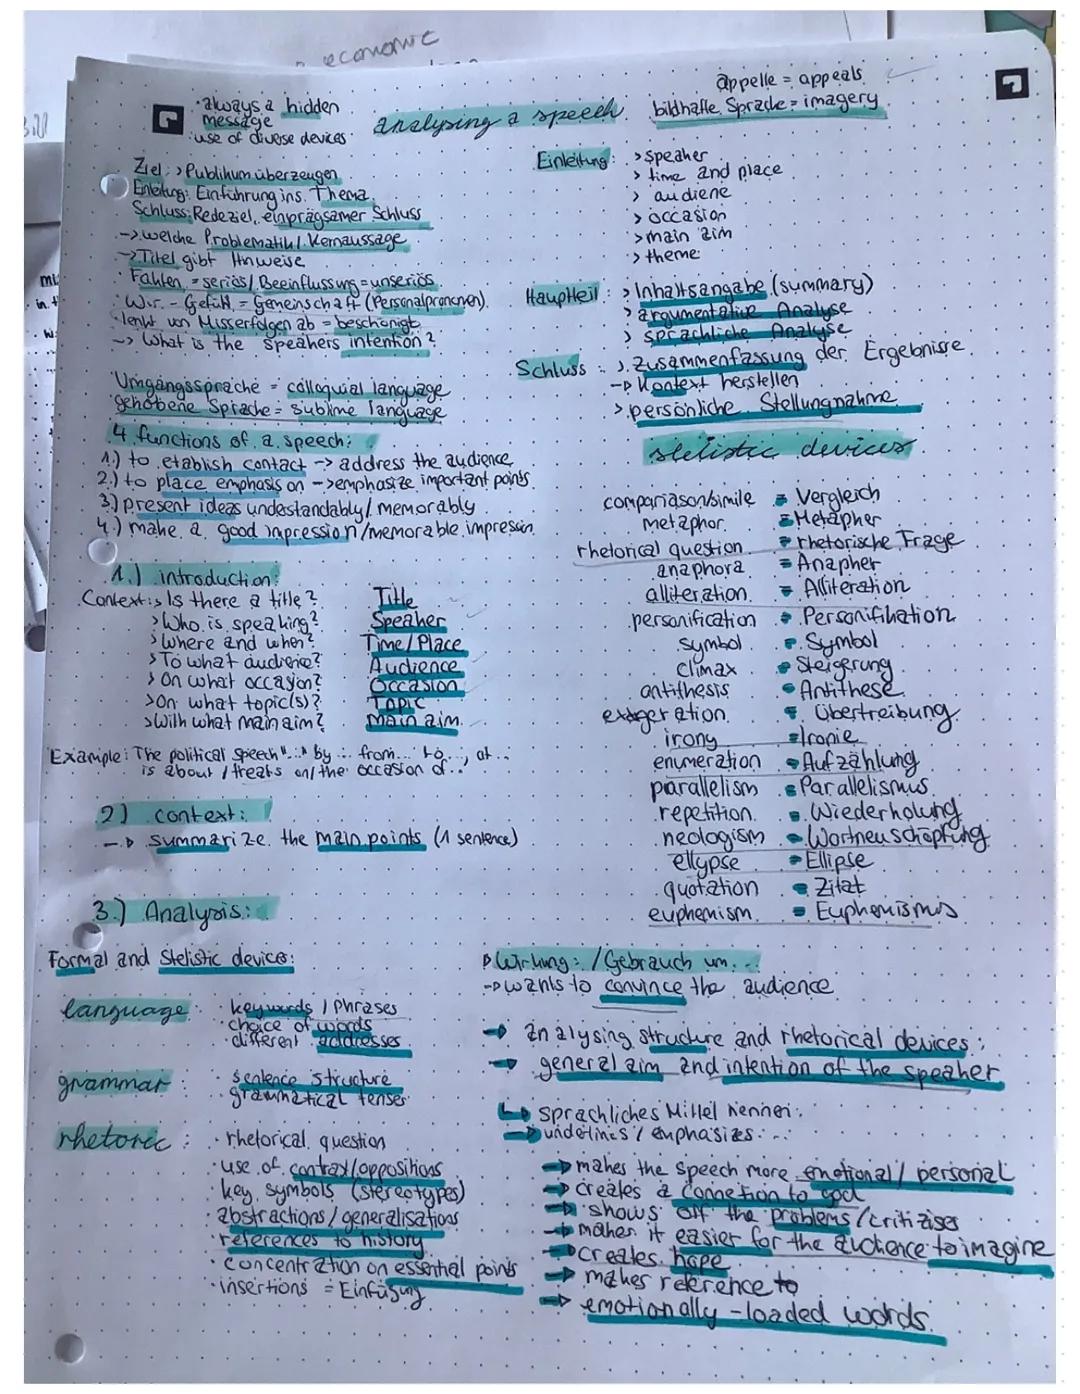 economic
appelle = appeals
bildhafte Sprache = imagery
· always a hidden
message
· use of diverse devices
analysing a speech
Ziel: > Publikum überzeugen
Einleitung: Einführung ins Thema
Schluss: Redeziel, einprägsamer Schluss
-> welche Problematik / Kernaussage
-> Titel gibt Hinweise
· Fakten = seriös / Beeinflussung = unseriös
· Wir - Gefühl = Gemeinschaft (Personalpronomen)
· lenkt von Misserfolgen ab = beschönigt
-> What is the speakers intention?
Umgangssprache = colloquial language
gehobene Sprache = sublime language
4 functions of a speech:
1.) to etablish contact -> address the audience
2.) to place emphasis on -> emphasize important points
3.) present ideas undestandably / memorably
4.) make a good inpression/memorable impressin
1.) introduction:
Context: > Is there a title? Title
> Who is speaking? Speaker
> Where and when? Time/Place
> To what audience? Audience
> On what occasion? Occasion
> On what topic(s)? Topic
> With what main aim? main aim
Example: The political speech "..." by ... from... to..., at...
is about / treats on/the occasion of...
2) context:
-> summarize the main points (1 sentence)
3.) Analysis:
Formal and Stelistic device:
language : · keywords / Phrases
· choice of words
· different addresses
grammar : · sentence structure
· grammatical tenses
rhetoric : · rhetorical question
· use of contrax/oppositions
· key symbols (stereotypes)
· abstractions / generalisations
· references to history
· concentration on essential points
· insertions = Einfügung
Einleitung: > speaker
> time and place
> audiene
> occasion
> main aim
> theme
Hauptteil: > Inhaltsangabe (summary)
> argumentative Analyse
> sprachliche Analyse
Schluss: > Zusammenfassung der Ergebnisse
-> Kontext herstellen
> persönliche Stellungnahme
stelistic devices
compariason/simile = Vergleich
metaphor = Metapher
rhetorical question = rhetorische Frage
anaphora = Anapher
alliteration = Alliteration
personification = Personifikation
symbol = Symbol
climax = Steigerung
antithesis = Antithese
exageration = Übertreibung
irony = Ironie
enumeration = Aufzählung
parallelism = Parallelismus
repetition = Wiederholung
neologism = Wortneuschöpfung
ellypse = Ellipse
quotation = Zitat
euphemism = Euphemismus
Wirkung: / Gebrauch um...
-> wants to convince the audience
-> analysing structure and rhetorical devices:
-> general aim and intention of the speaker
-> sprachliches Mittel nennen:
-> underlines / emphasizes: ...
-> makes the speech more emotional / personal
-> creates a connetion to god
-> shows off the problems / critizises
-> makes it easier for the audience to imagine
-> creates hope
-> makes reference to
-> emotionally-loaded words